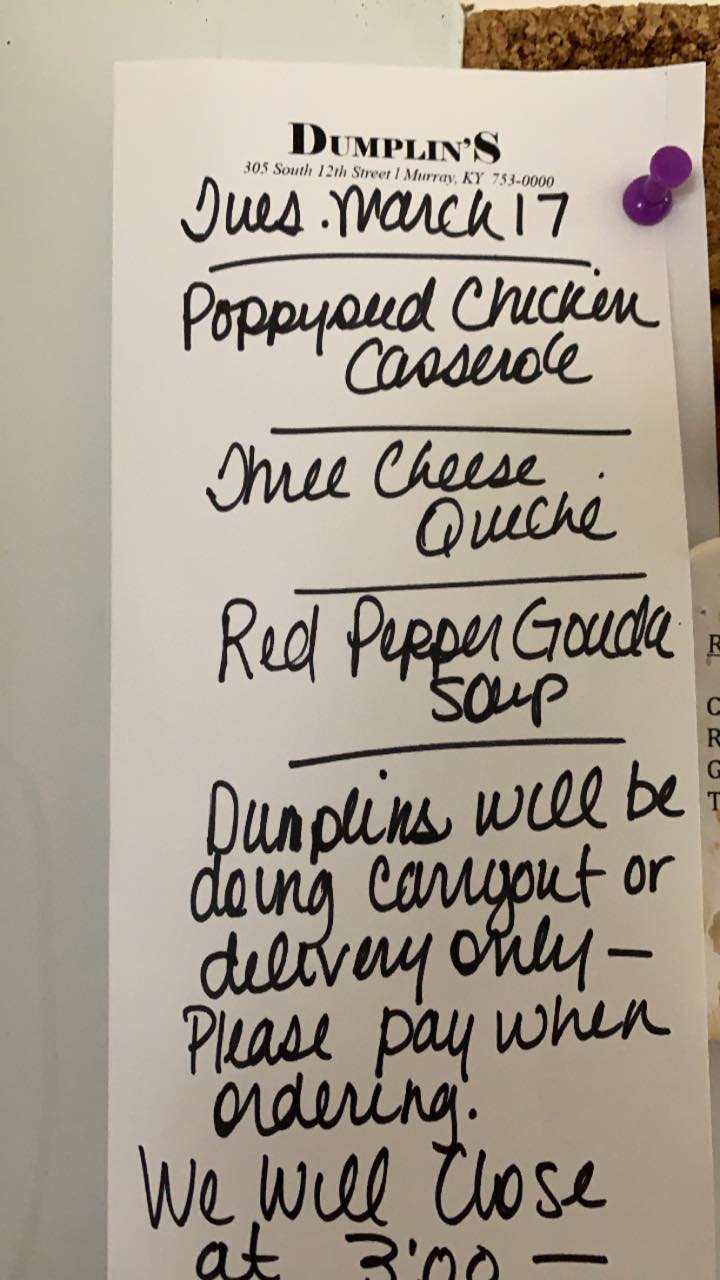 DUMPLIN'S
305 South 12th Street | Murray, KY 753-0000
Tues. March 17
Poppyseed Chicken
Casserole
Three Cheese
Quiche
Red Pepper Gouda
Soup
Dumplins will be
doing carryout or
delivery only —
Please pay when
ordering.
We Will Close
at 3:00 —
R
C
R
G
T